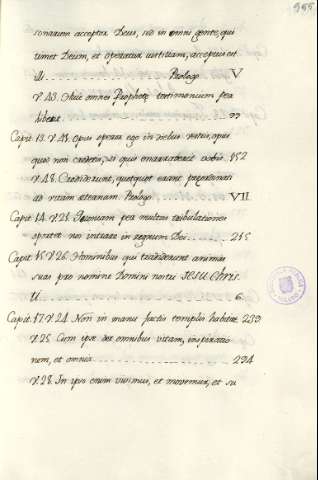 sonarum acceptor Deus, sed in omni gente, qui
timet Deum, et operatur iustitiam, acceptus est
illi. Prologo V
V. 43. Huic omnes Prophetæ testimonium per
hibent. 77
Capit. 13. V. 41. Opus operor ego in diebus vestris, opus
quod non credetis, si quis enarraberit vobis. 152
V. 48. Crediderunt, quotquot erant præordinati
ad vitam æternam. Prologo VII
Capit. 14. V. 21. Quoniam per multas tribulationes
oportet nos intrare in regnum Dei. 245
Capit. 15. V. 26. Hominibus qui tradiderunt animas
suas pro nomine Domini nostri JESU CHRIS
TI 6
Capit. 17. V. 24. Non in manu factis templis habitat 233
V. 25. Cum ipse det omnibus vitam, inspiratio
nem, et omnia 234
V. 28. In ipso enim vivimus, et movemur, et su